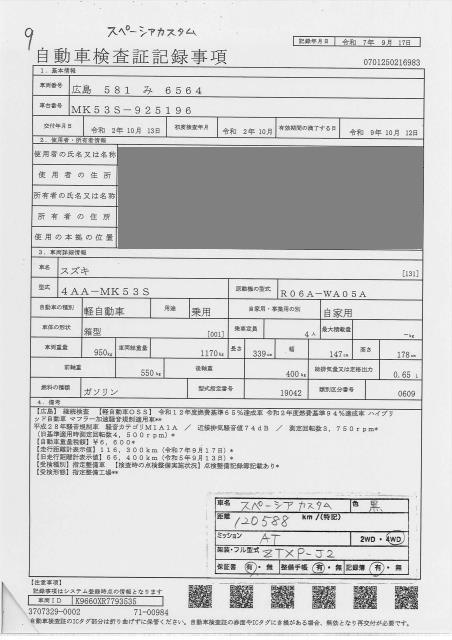 9
スペーシアカスタム
自動車検査証記録事項
記録年月日 令和 7年 9月 17日
0701250216983
1. 基本情報
車両番号 広島 581 み 6564
車台番号 MK53S-925196
交付年月日 令和 2年 10月 13日 初度検査年月 令和 2年 10月 有効期間の満了する日 令和 9年 10月 12日
2. 使用者・所有者情報
使用者の氏名又は名称
使用者の住所
所有者の氏名又は名称
所有者の住所
使用の本拠の位置
3. 車両詳細情報
車名 スズキ [131]
型式 4AA-MK53S 原動機の型式 R06A-WA05A
自動車の種別 軽自動車 用途 乗用 自家用・事業用の別 自家用
車体の形状 箱型 [001] 乗車定員 4人 最大積載量 -kg
車両重量 950kg 車両総重量 1170kg 長さ 339cm 幅 147cm 高さ 178cm
前軸重 550kg 後軸重 400kg 総排気量又は定格出力 0.65 L
燃料の種類 ガソリン 型式指定番号 19042 類別区分番号 0609
4. 備考
【広島】 継続検査 【軽自動車OSS】 令和12年度燃費基準65%達成車 令和2年度燃費基準94%達成車 ハイブリ
ッド自動車 マフラー加速騒音規制適用車**
平成28年騒音規制車 騒音カテゴリM1A1A / 近接排気騒音値74dB / 測定回転数3,750rpm*
(旧基準適用時測定回転数4,500rpm)*
【自動車重量税額】¥6,600*
【走行距離計表示値】116,300km(令和7年9月17日)
【旧走行距離計表示値】66,400km(令和5年9月13日)*
【受検種別】指定整備車 【検査時の点検整備実施状況】点検整備記録簿記載あり*
【受検形態】指定整備工場**
車名 スペーシアカスタム 色 黒
距離 120588 km/(特記)
ミッション AT 2WD・4WD
架装・フル型式 ZTXP-J2
保証書 有・無 整備手帳 有・無 記録簿 有・無
【注意事項】
記載事項はシステム登録時点の情報となります
車両ID K9660XR7793535
3707329-0002 71-00984
自動車検査証のICタグ部分は折り曲げずに保管ください。自動車検査証の券面やICタグにき損がある場合、無効となり再交付が必要です。